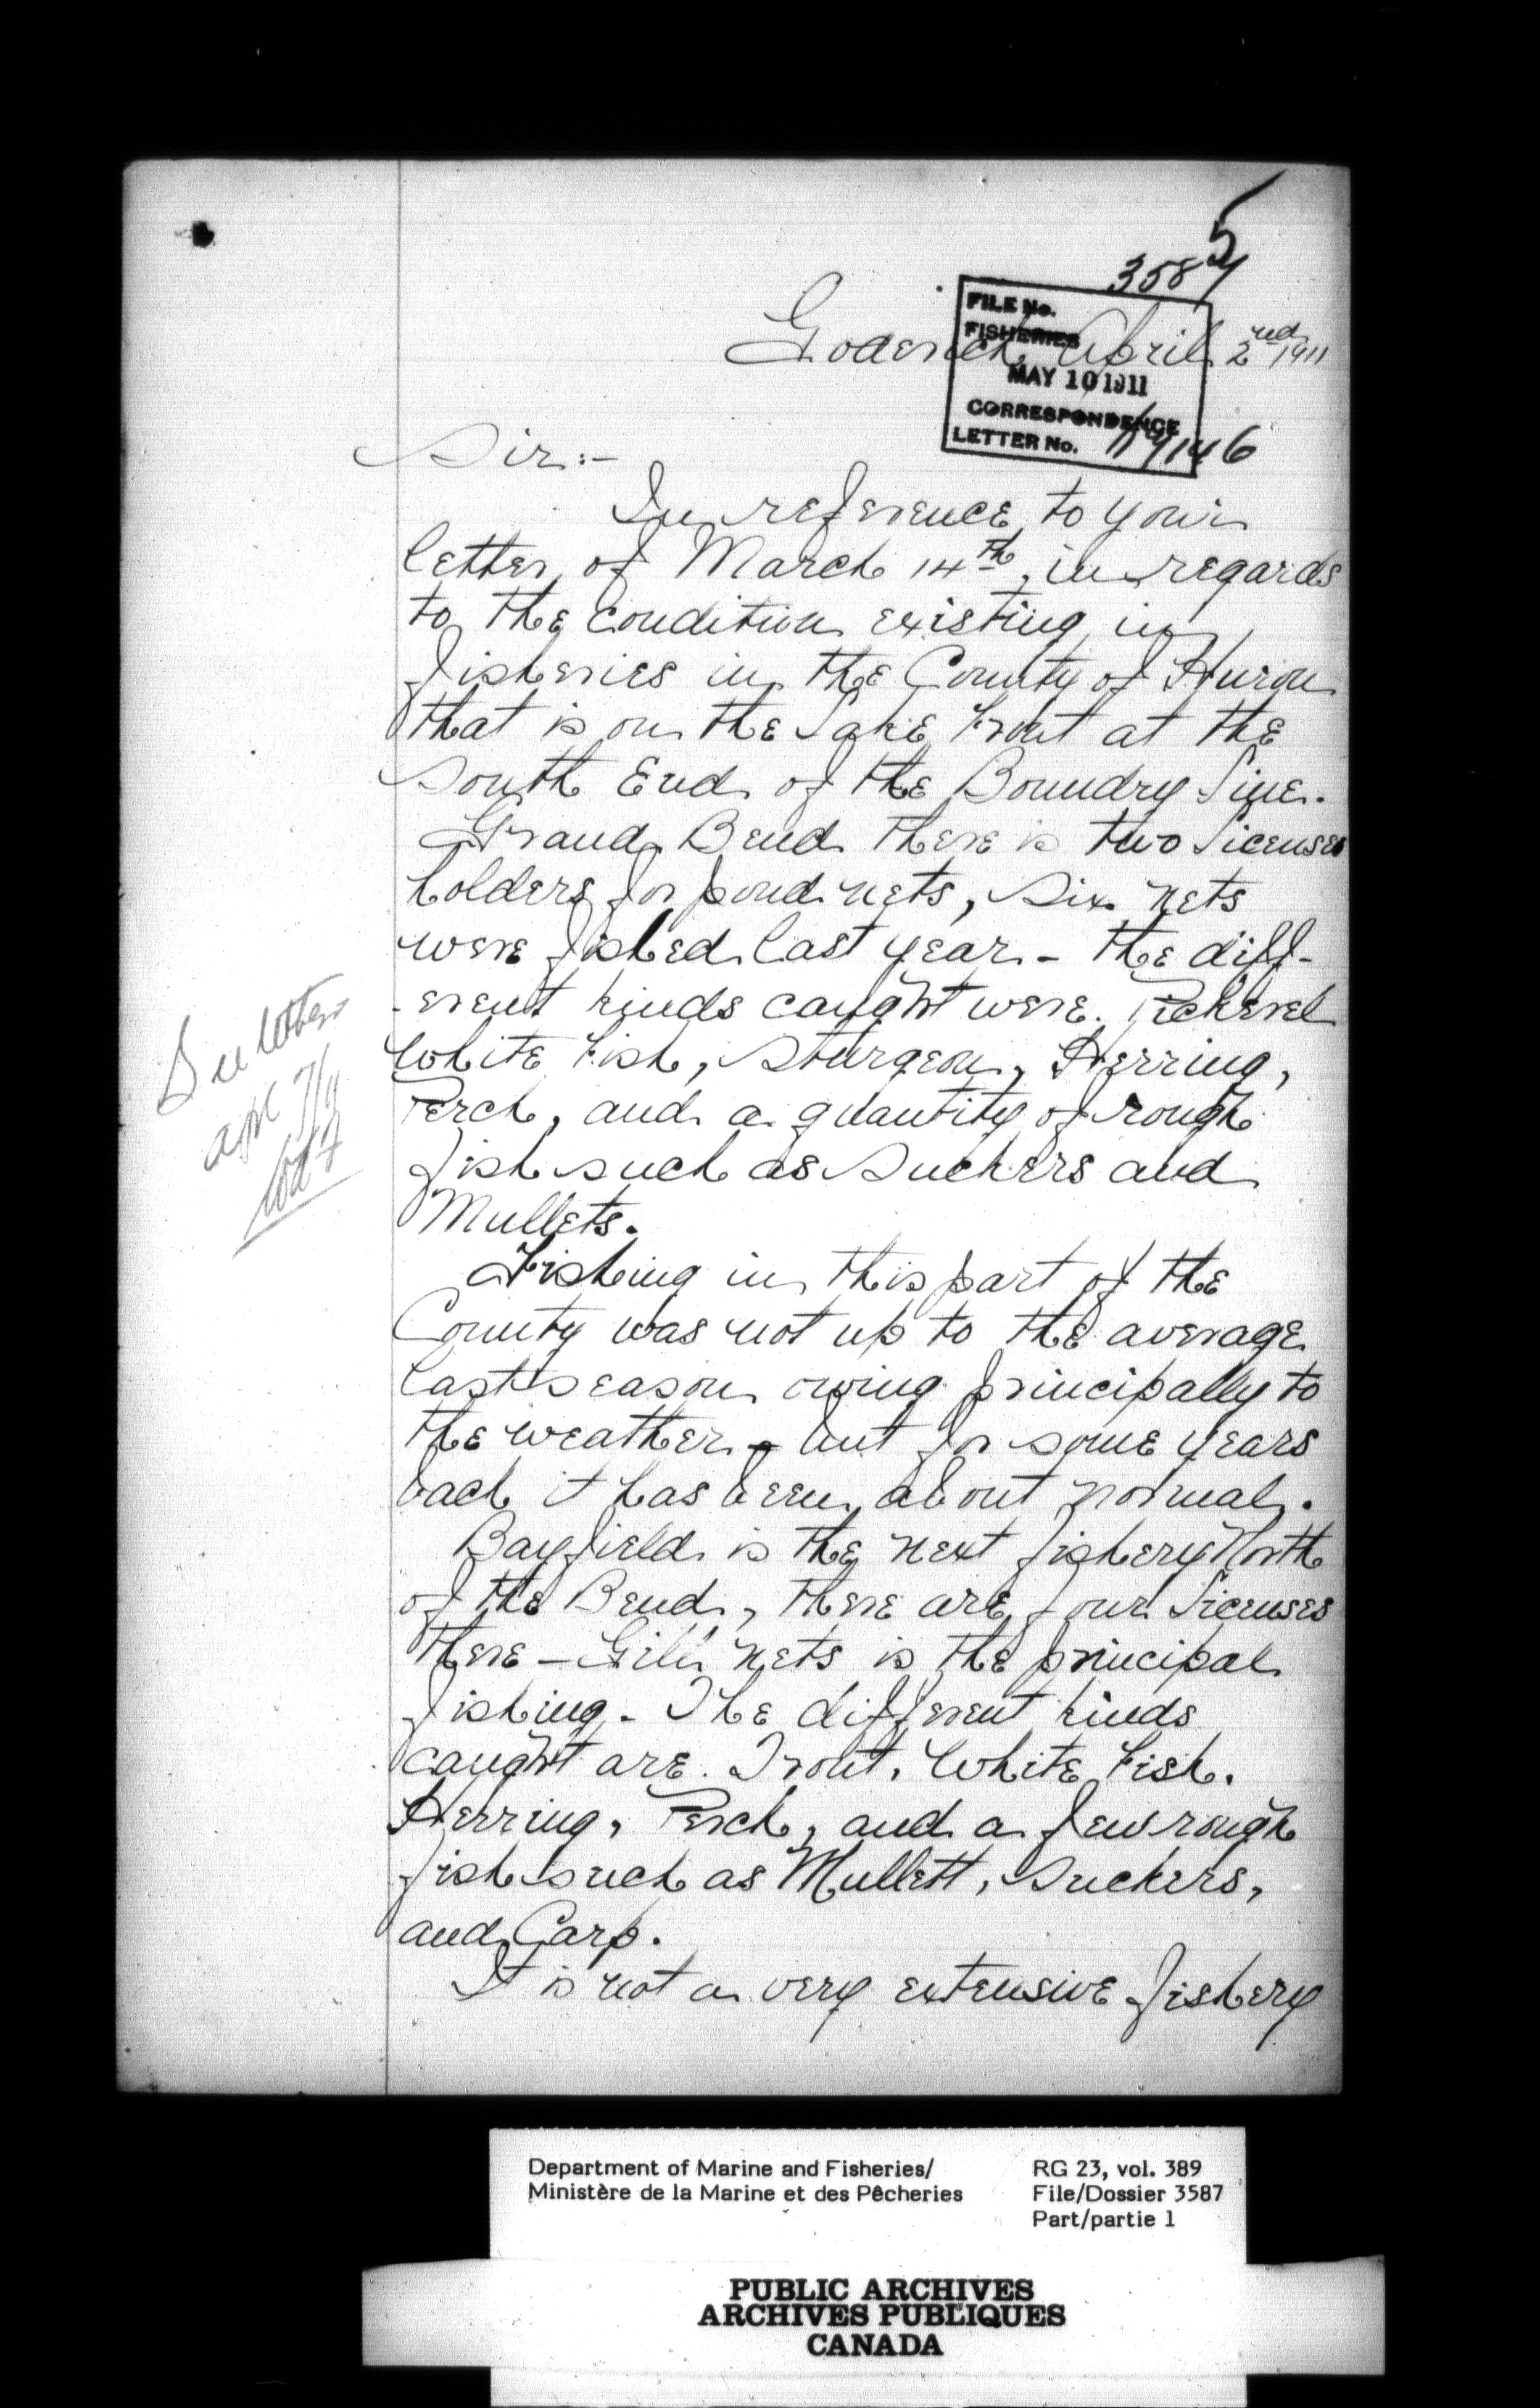 5
3587
FILE No.
FISHERIES
MAY 10 1911
CORRESPONDENCE
LETTER No.
Goderich, April 2nd 1911
Sir:-
In reference to your
letter of March 14th, in regards
to the condition existing in
fisheries in the County of Huron
that is on the Lake Front at the
South End of the Boundry Line.
Grand Bend there is two Licenses
holders for pond nets, Six nets
were fished last year - the diff-
-erent kinds caught were. Pickerel
White Fish, Sturgeon, Herring,
Perch, and a quantity of rough
fish such as Suckers and
Mullets.
Fishing in this part of the
County was not up to the average
last season owing principally to
the weather - but for some years
back it has been about normal.
Bayfield is the next fishery North
of the Bend, there are four Licenses
there - Gill nets is the principal
fishing. The different kinds
caught are. Trout, White Fish.
Herring, Perch, and a few rough
fish such as Mullett, Suckers,
and Carp.
It is not a very extensive fishery
Department of Marine and Fisheries/
Ministère de la Marine et des Pêcheries
RG 23, vol. 389
File/Dossier 3587
Part/partie 1
PUBLIC ARCHIVES
ARCHIVES PUBLIQUES
CANADA